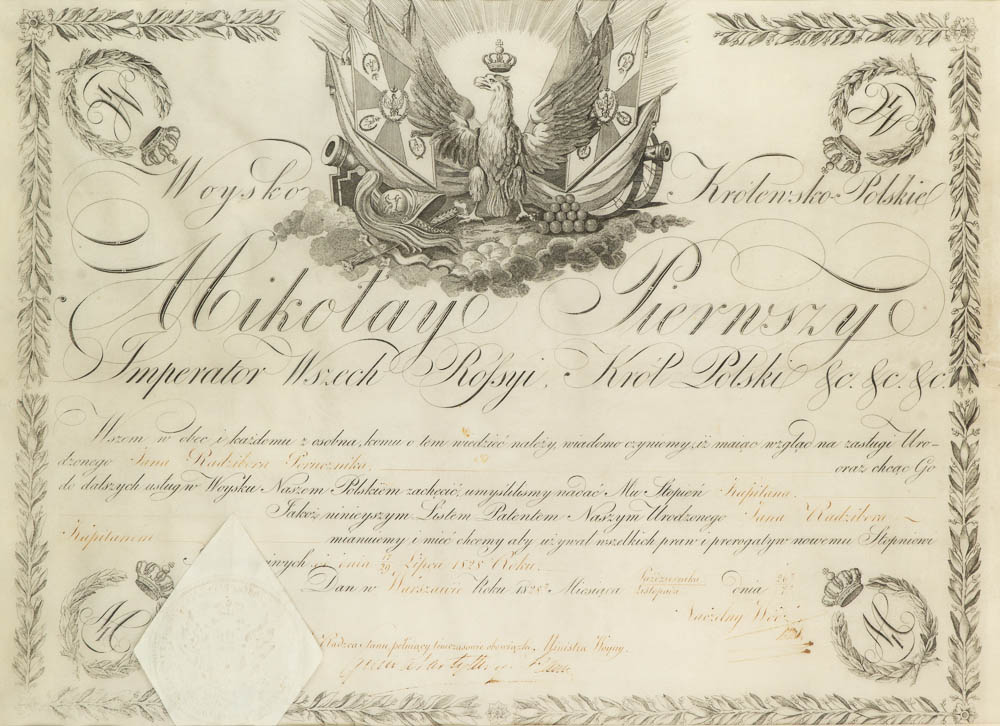 Woysko Królewsko-Polskie
Mikołay Pierwszy
Imperator Wszech Rossyi, Król Polski &c. &c. &c.
Wszem w obec i każdemu z osobna, komu o tem wiedzieć należy, wiadomo czyniemy, iż maiąc wzgląd na zasługi Uro-
dzonego Jana Radzibora Porucznika oraz chcąc Go
do dalszych usług w Woysku Naszem Polskiem zachęcić, umyśliliśmy nadać Mu Stopień Kapitana.
Jakoż ninieyszym Listem Patentem Naszym Urodzonego Jana Radzibora
Kapitanem mianuiemy i mieć chcemy aby używał wszelkich praw i prerogatyw nowemu Stopniowi
dnia 29 Lipca 1828 Roku.
Dan w Warszawie Roku 1828 Miesiąca Października
Listopada dnia
Naczelny Wódz
Radzca Stanu pełniący tymczasowie obowiązki Ministra Woyny.